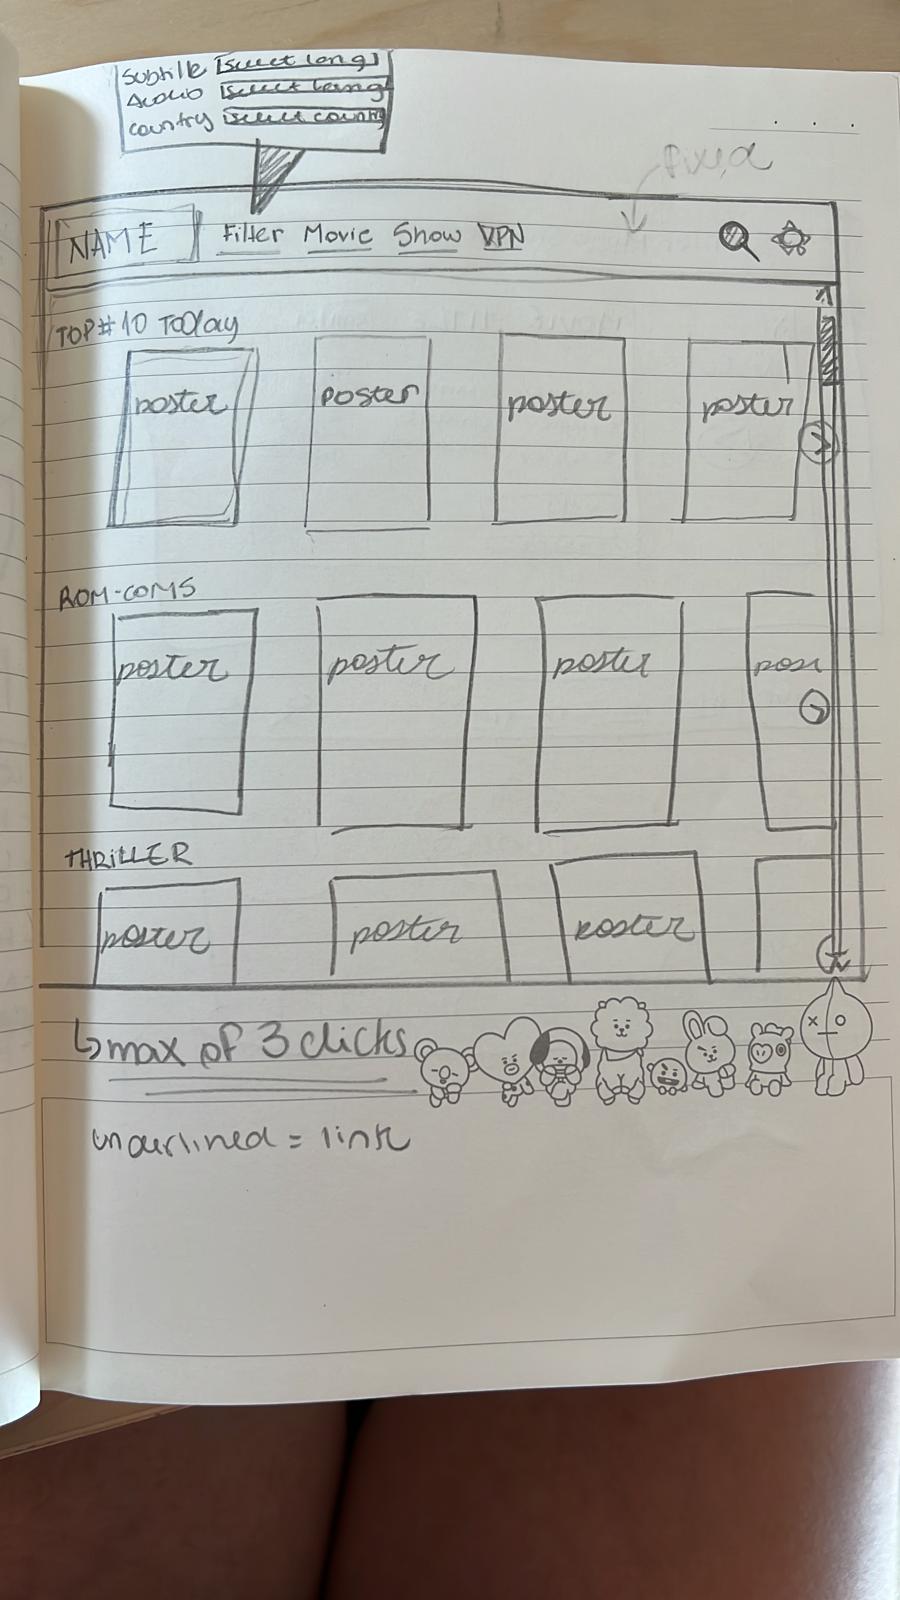 Subtitle [select lang]
Audio [select lang]
country [select country]
fixed
NAME Filter Movie Show VPN
TOP#10 Today
poster poster poster poster
ROM-COMS
poster poster poster
THRILLER
poster poster poster
max of 3 clicks
underlined = link